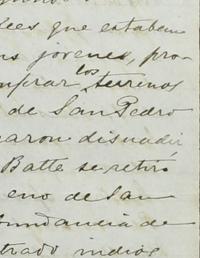 lees que estaban
jovenes, pro-
los
comprar terrenos
de San Pedro
aron disuadir
Batte se retiró
eno de San
bundancia de
trado indios